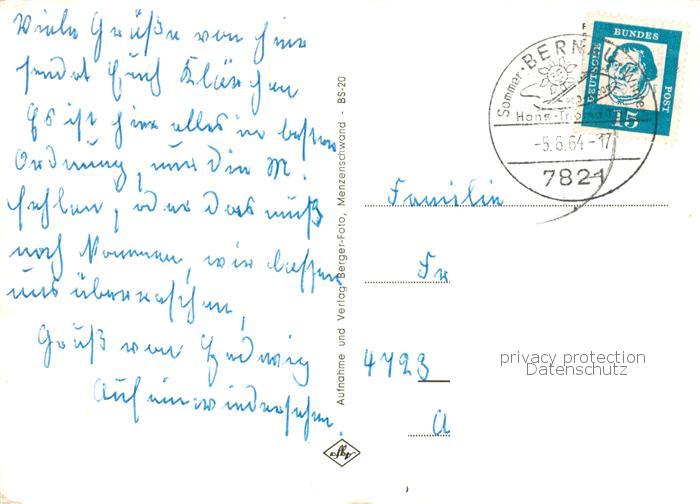 Viele Grüße von hier
sendet Euch Klärchen
Es ist hier alles in bester
Ordnung, nur die M.
fehlen, oder das muß
noch kommen, wir lassen
uns überraschen,
Gruß von Hedwig
Auf ein wiedersehen.
Aufnahme und Verlag Berger-Foto, Menzenschwand - BS-20
afka
BERNAU
Sommer
Winter
Hans-Thoma-Tal
-5.6.64-17
7821
DEUTSCHE
BUNDES
POST
15
Familie
Fr
4723
A
privacy protection
Datenschutz